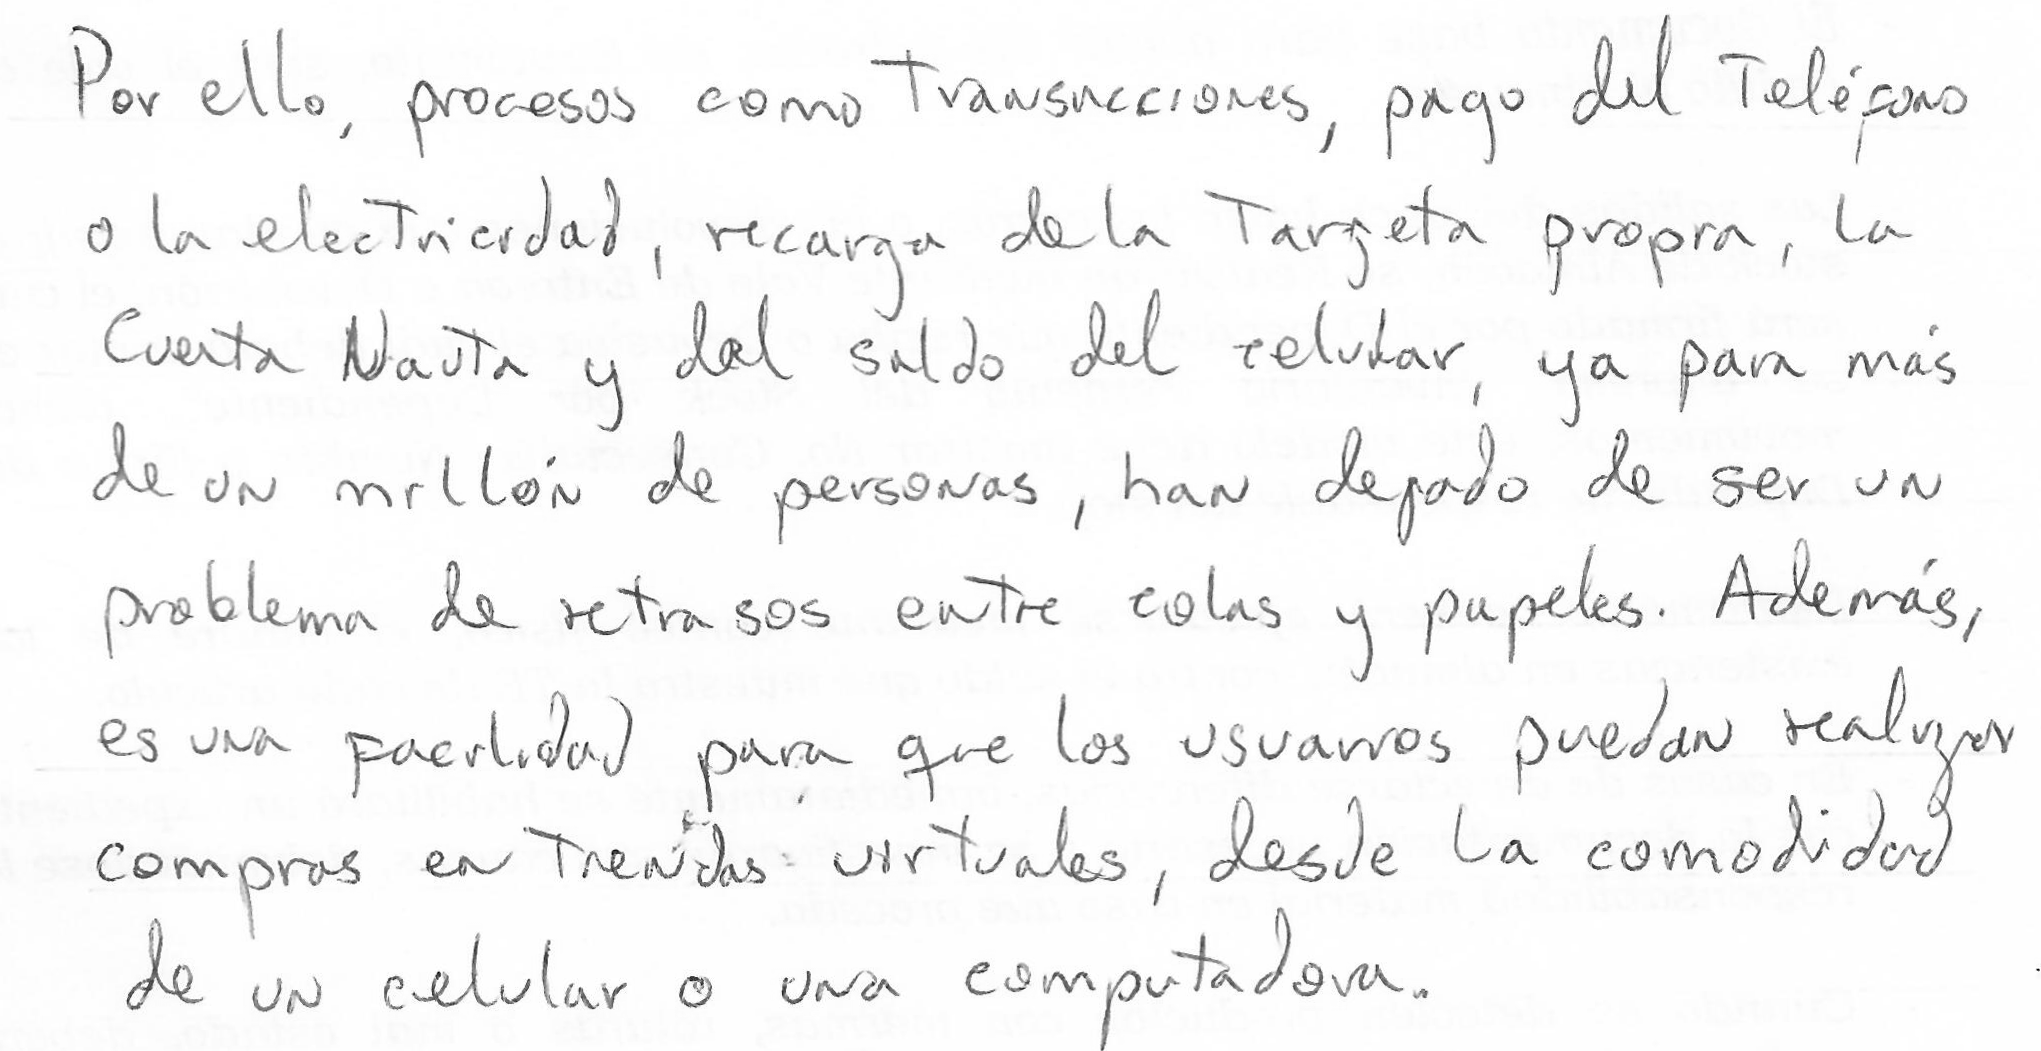 Por ello, procesos como transacciones, pago del teléfono
o la electricidad, recarga de la tarjeta propia, la
cuenta Nauta y del saldo del celular, ya para más
de un millón de personas, han dejado de ser un
problema de retrasos entre colas y papeles. Además,
es una facilidad para que los usuarios puedan realizar
compras en tiendas virtuales, desde la comodidad
de un celular o una computadora.